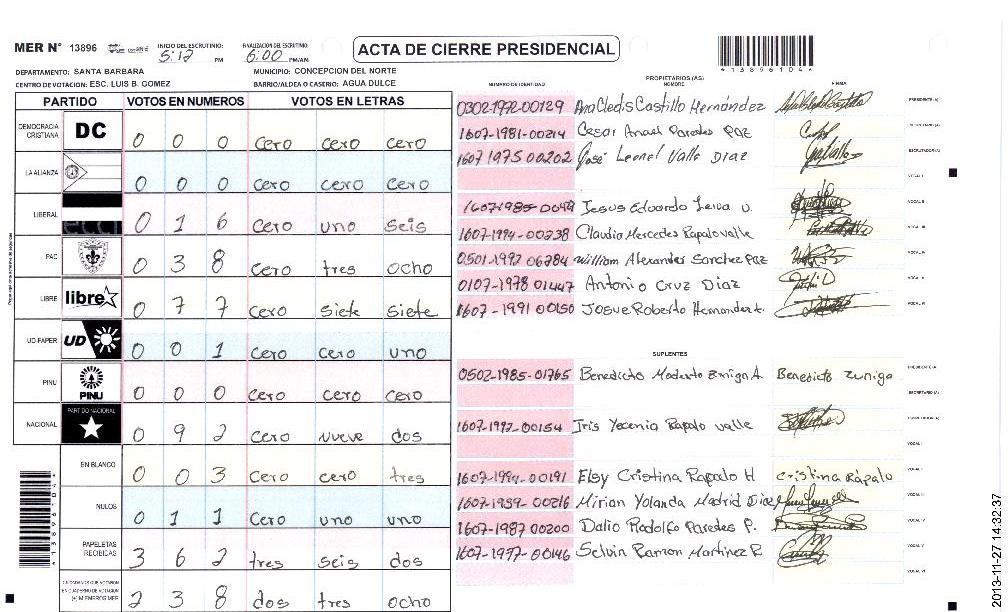 MER N° 13896
INICIO DEL ESCRUTINIO: 5:17 PM
FINALIZACION DEL ESCRUTINIO: 6:00 PM/AM
ACTA DE CIERRE PRESIDENCIAL
*13896104*
DEPARTAMENTO: SANTA BARBARA
MUNICIPIO: CONCEPCION DEL NORTE
CENTRO DE VOTACION: ESC. LUIS B. GOMEZ
BARRIO/ALDEA O CASERIO: AGUA DULCE
PARTIDO VOTOS EN NUMEROS VOTOS EN LETRAS
DEMOCRACIA CRISTIANA DC 0 0 0 cero cero cero
LA ALIANZA 0 0 0 cero cero cero
LIBERAL 0 1 6 cero uno seis
PAC 0 3 8 cero tres ocho
LIBRE libre 0 7 7 cero siete siete
UD-FAPER UD 0 0 1 cero cero uno
PINU PINU 0 0 0 cero cero cero
NACIONAL PARTIDO NACIONAL 0 9 2 cero nueve dos
EN BLANCO 0 0 3 cero cero tres
NULOS 0 1 1 cero uno uno
PAPELETAS RECIBIDAS 3 6 2 tres seis dos
CIUDADANOS QUE VOTARON EN CUADERNO DE VOTACION (+) MIEMBROS MER 2 3 8 dos tres ocho
PROPIETARIOS (AS)
NUMERO DE IDENTIDAD NOMBRE FIRMA
0302-1972-00129 Ana Cledis Castillo Hernández PRESIDENTE (A)
1607-1981-00214 Cesar Anael Paredes Paz SECRETARIO (A)
1607 1975 00202 José Leonel Valle Diaz ESCRUTADOR (A)
VOCAL I
1607-1985-0094 Jesus Eduardo Leiva v. VOCAL II
1607-1994-00238 Claudia Mercedes Rapalo valle VOCAL III
0501-1992 06784 William Alexander Sanchez Paz VOCAL IV
0107-1978 01447 Antonio Cruz Diaz VOCAL V
1607-1991 00150 Josue Roberto Hernandez VOCAL VI
SUPLENTES
0502-1985-01765 Benedicto Modesto Zuniga A. Benedicto Zuniga PRESIDENTE (A)
SECRETARIO (A)
1607-1992-00154 Iris Yecenia Rapalo valle ESCRUTADOR (A)
VOCAL I
1607-1994-00191 Elsy Cristina Rapalo H cristina Rápalo VOCAL II
1607-1989-00216 Mirian Yolanda Madrid Diaz VOCAL III
1607-1987 00200 Dalio Rodolfo Paredes P. VOCAL IV
1607-1977-00146 Selvin Ramon Martinez R VOCAL V
VOCAL VI
*13896104*
2013-11-27 14:32:37